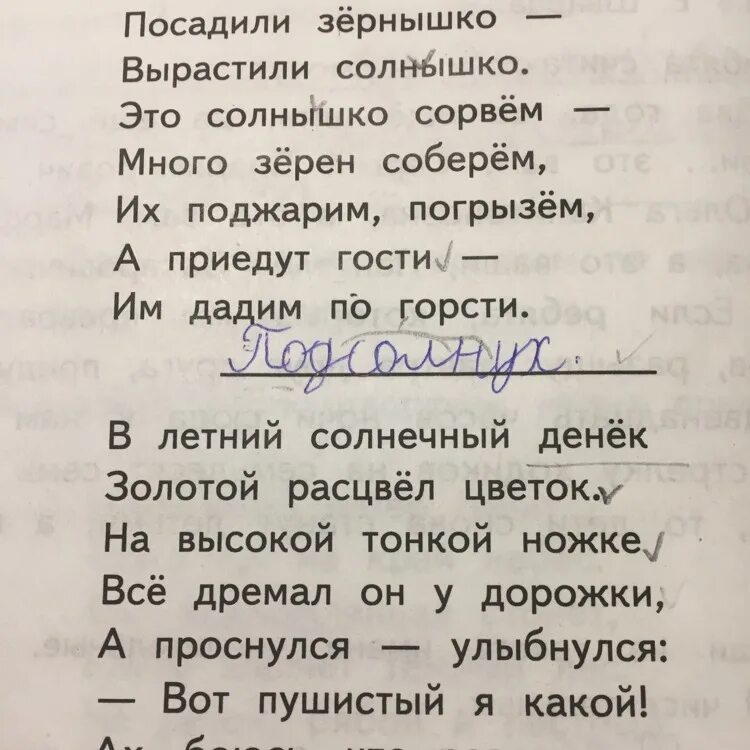 Посадили зёрнышко —
Вырастили солнышко.
Это солнышко сорвём —
Много зёрен соберём,
Их поджарим, погрызём,
А приедут гости —
Им дадим по горсти.
Подсолнух.
В летний солнечный денёк
Золотой расцвёл цветок.
На высокой тонкой ножке
Всё дремал он у дорожки,
А проснулся — улыбнулся:
— Вот пушистый я какой!